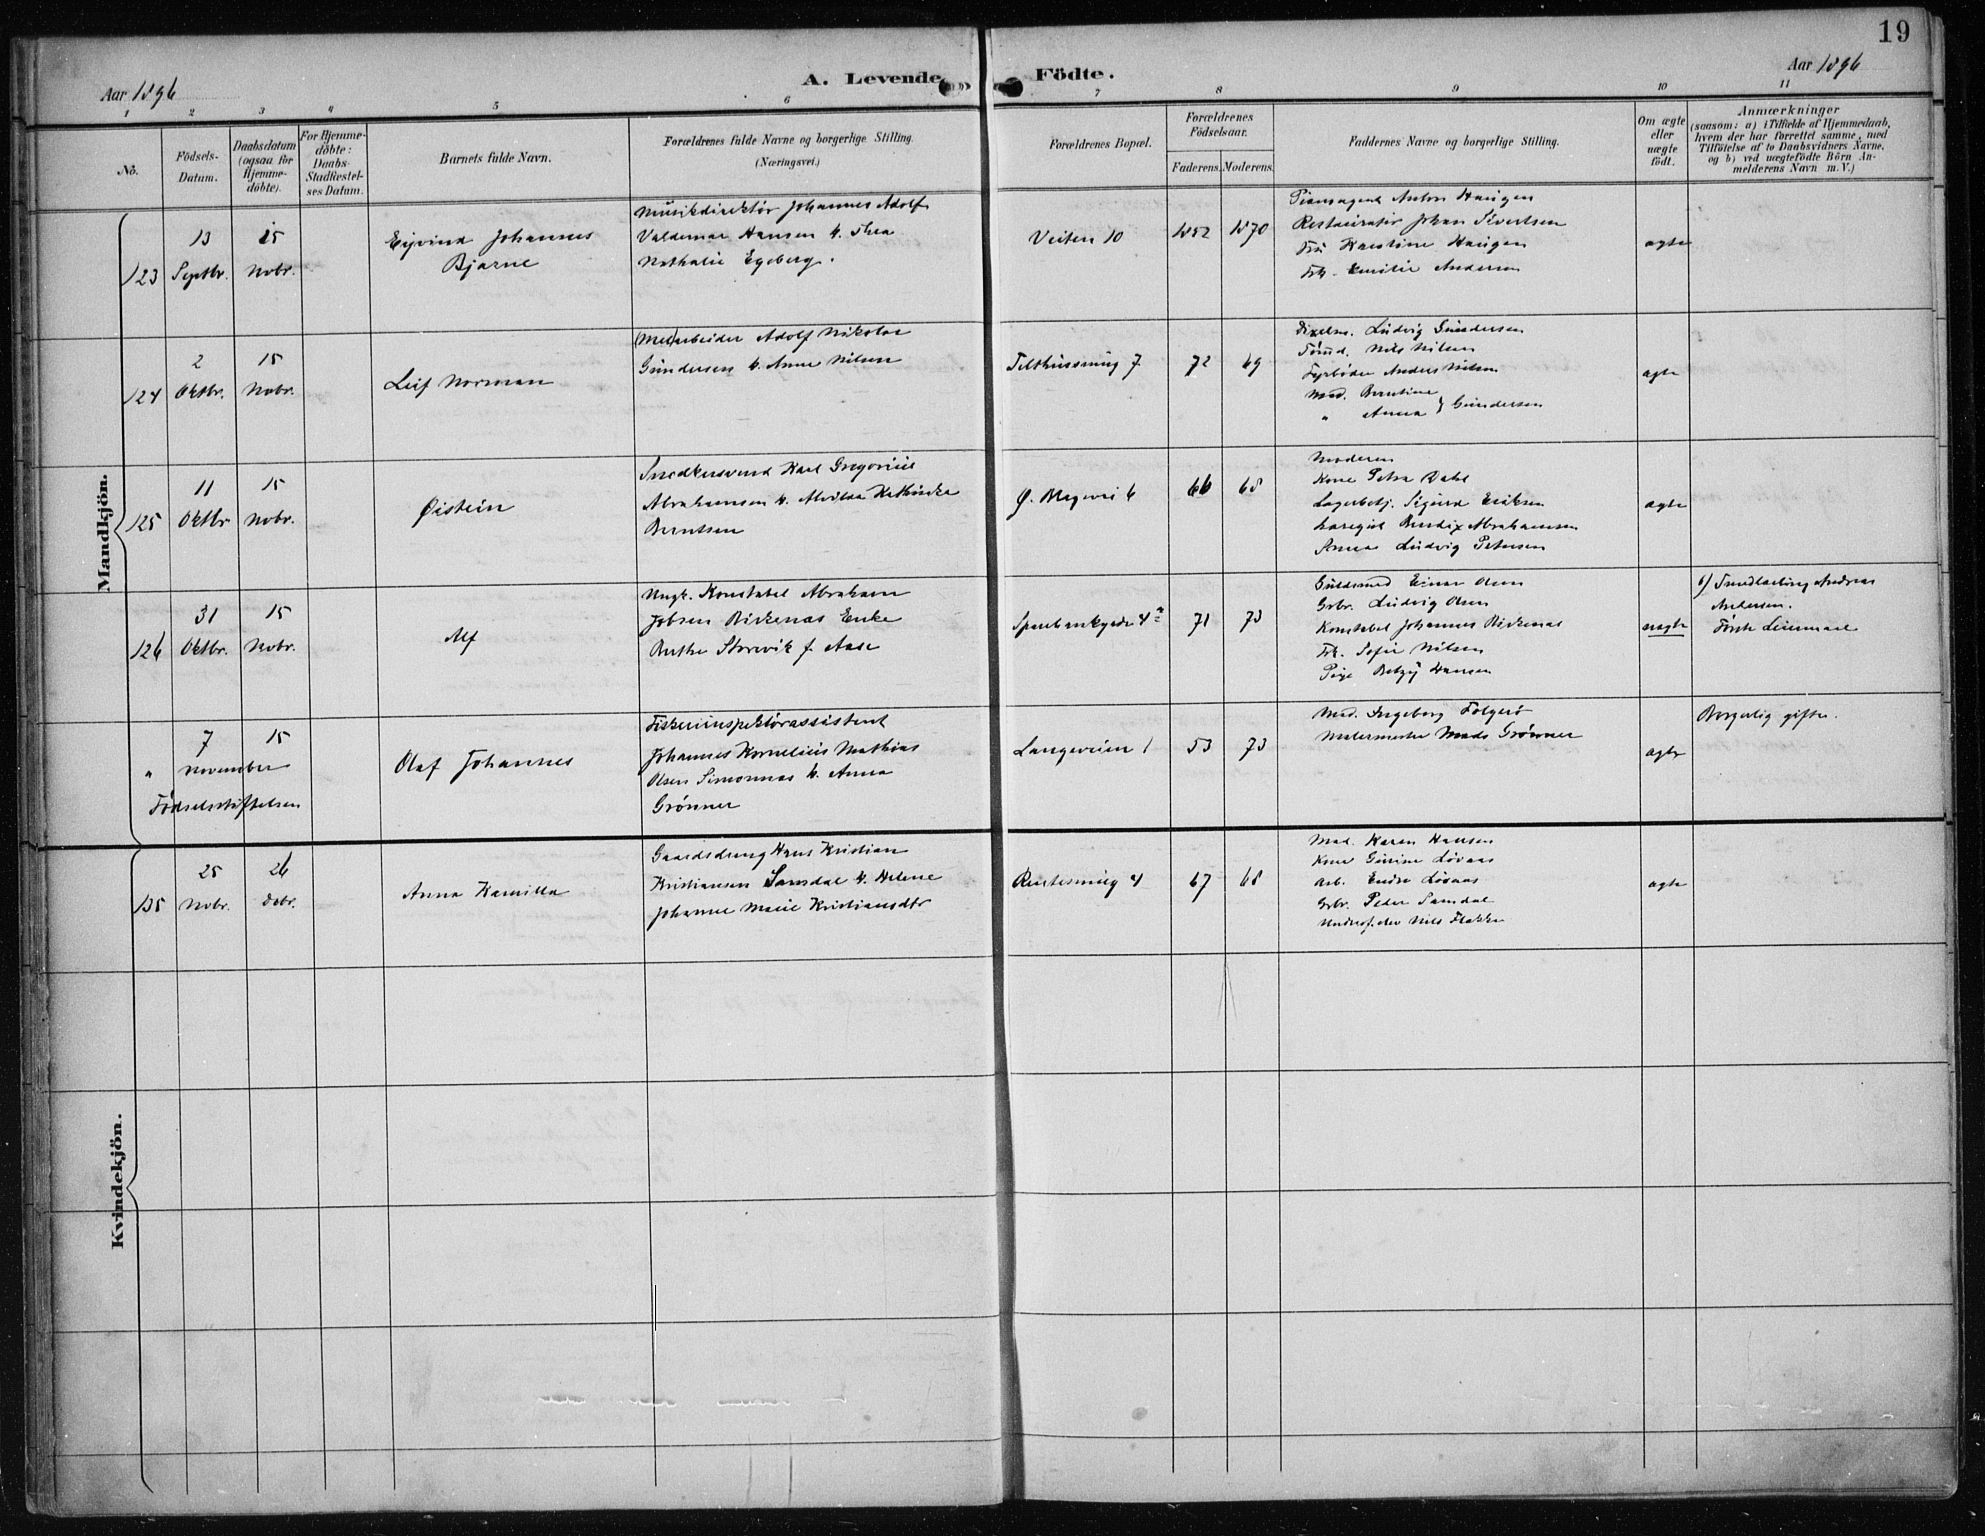 19
Aar 1896
A. Levende Födte.
Aar 1896
1 2 3 4 5 6 7 8 9 10 11
No.
Födsels-Datum.
Daabsdatum (ogsaa for Hjemme-döbte).
For Hjemme-döbte: Daabs-Stadfæstel-ses Datum.
Barnets fulde Navn.
Forældrenes fulde Navne og borgerlige Stilling.
(Næringsvei.)
Forældrenes Bopæl.
Forældrenes Födselsaar.
Faderens. Moderens.
Faddernes Navne og borgerlige Stilling.
Om ægte eller uægte födt.
Anmærkninger
(saasom: a) i Tilfælde af Hjemmedaab, hvem der har forrettet samme, med Tilföielse af to Daabsvidners Navne, og b) ved uægtefödte Börn An-melderens Navn m. V.)
Mandkjön.
123
13 Septbr.
15 Novbr.
Eyvind Johannes
Bjarne
Musikdirektør Johannes Adolf
Valdemar Hansen & Thea
Nathalie Egeberg.
Veiten 10
1852
1870
Pianoagent Anton Haugen
Restauratør Johan Sivertsen
Fru Karoline Haugen
Frk. Emilie Andersen
ægte
124
2 Oktbr.
15 Novbr.
Leif Norman
(Met)arbeider Adolf Nikolai
Gundersen & Anne Nilsen
Telthussmug 7
72
69
Ludvig Gundersen
Nils Nilsen
Fyrbøder Anders Nilsen
Mad. Berntine
" Anna } Gundersen
ægte
125
11 Oktbr
15 Novbr.
Øistein
Snedkersvend Karl Gregorius
Abrahamsen & Alvilda Kathinka
Berntsen
Ø. Blegevei 6
66
68
Moderen
Kone Petra Dahl
Lagerbetj. Sigurd Eriksen
Bendix Abrahamsen
Ludvig Petersen
ægte
126
31 Oktbr.
15 Novbr.
Alf
Ungk. Konstabel Abraham
Jobsen Birkenæs Enke
Berthe Storevik f. Aase
Sparebankgade 4a
71
73
Guldsmed Einar Olsen
Grbr. Ludvig Olsen
Konstabel Johannes Birkenæs
Frk. Sofie Nilsen
Pige Betzy Hansen
uægte
b) Smedlærling Andreas
Andersen.
Første Leiermaal
"
7 November
15
Fødselsstiftelsen
Olaf Johannes
Fiskeriinspektørassistent
Johannes Kornelius Mathias
Olsen Simonnæs & Anna
Grönner
Langeveien 1
53
73
Mad. Ingeborg Folgerø
Malermester Mads Grönner
ægte
Borgerlig gifte.
Kvindekjön.
135
25 Novbr.
26 Debr.
Anna Kamilla
Gaardsdreng Hans Kristian
Kristiansen Samdal & Helene
Johanne Marie Kristiansdtr
4
67
68
Mad. Karen Hansen
Kone Løvaas
Arb. Endre Løvaas
Grbr. Peder Samdal
Nils Flakke
ægte